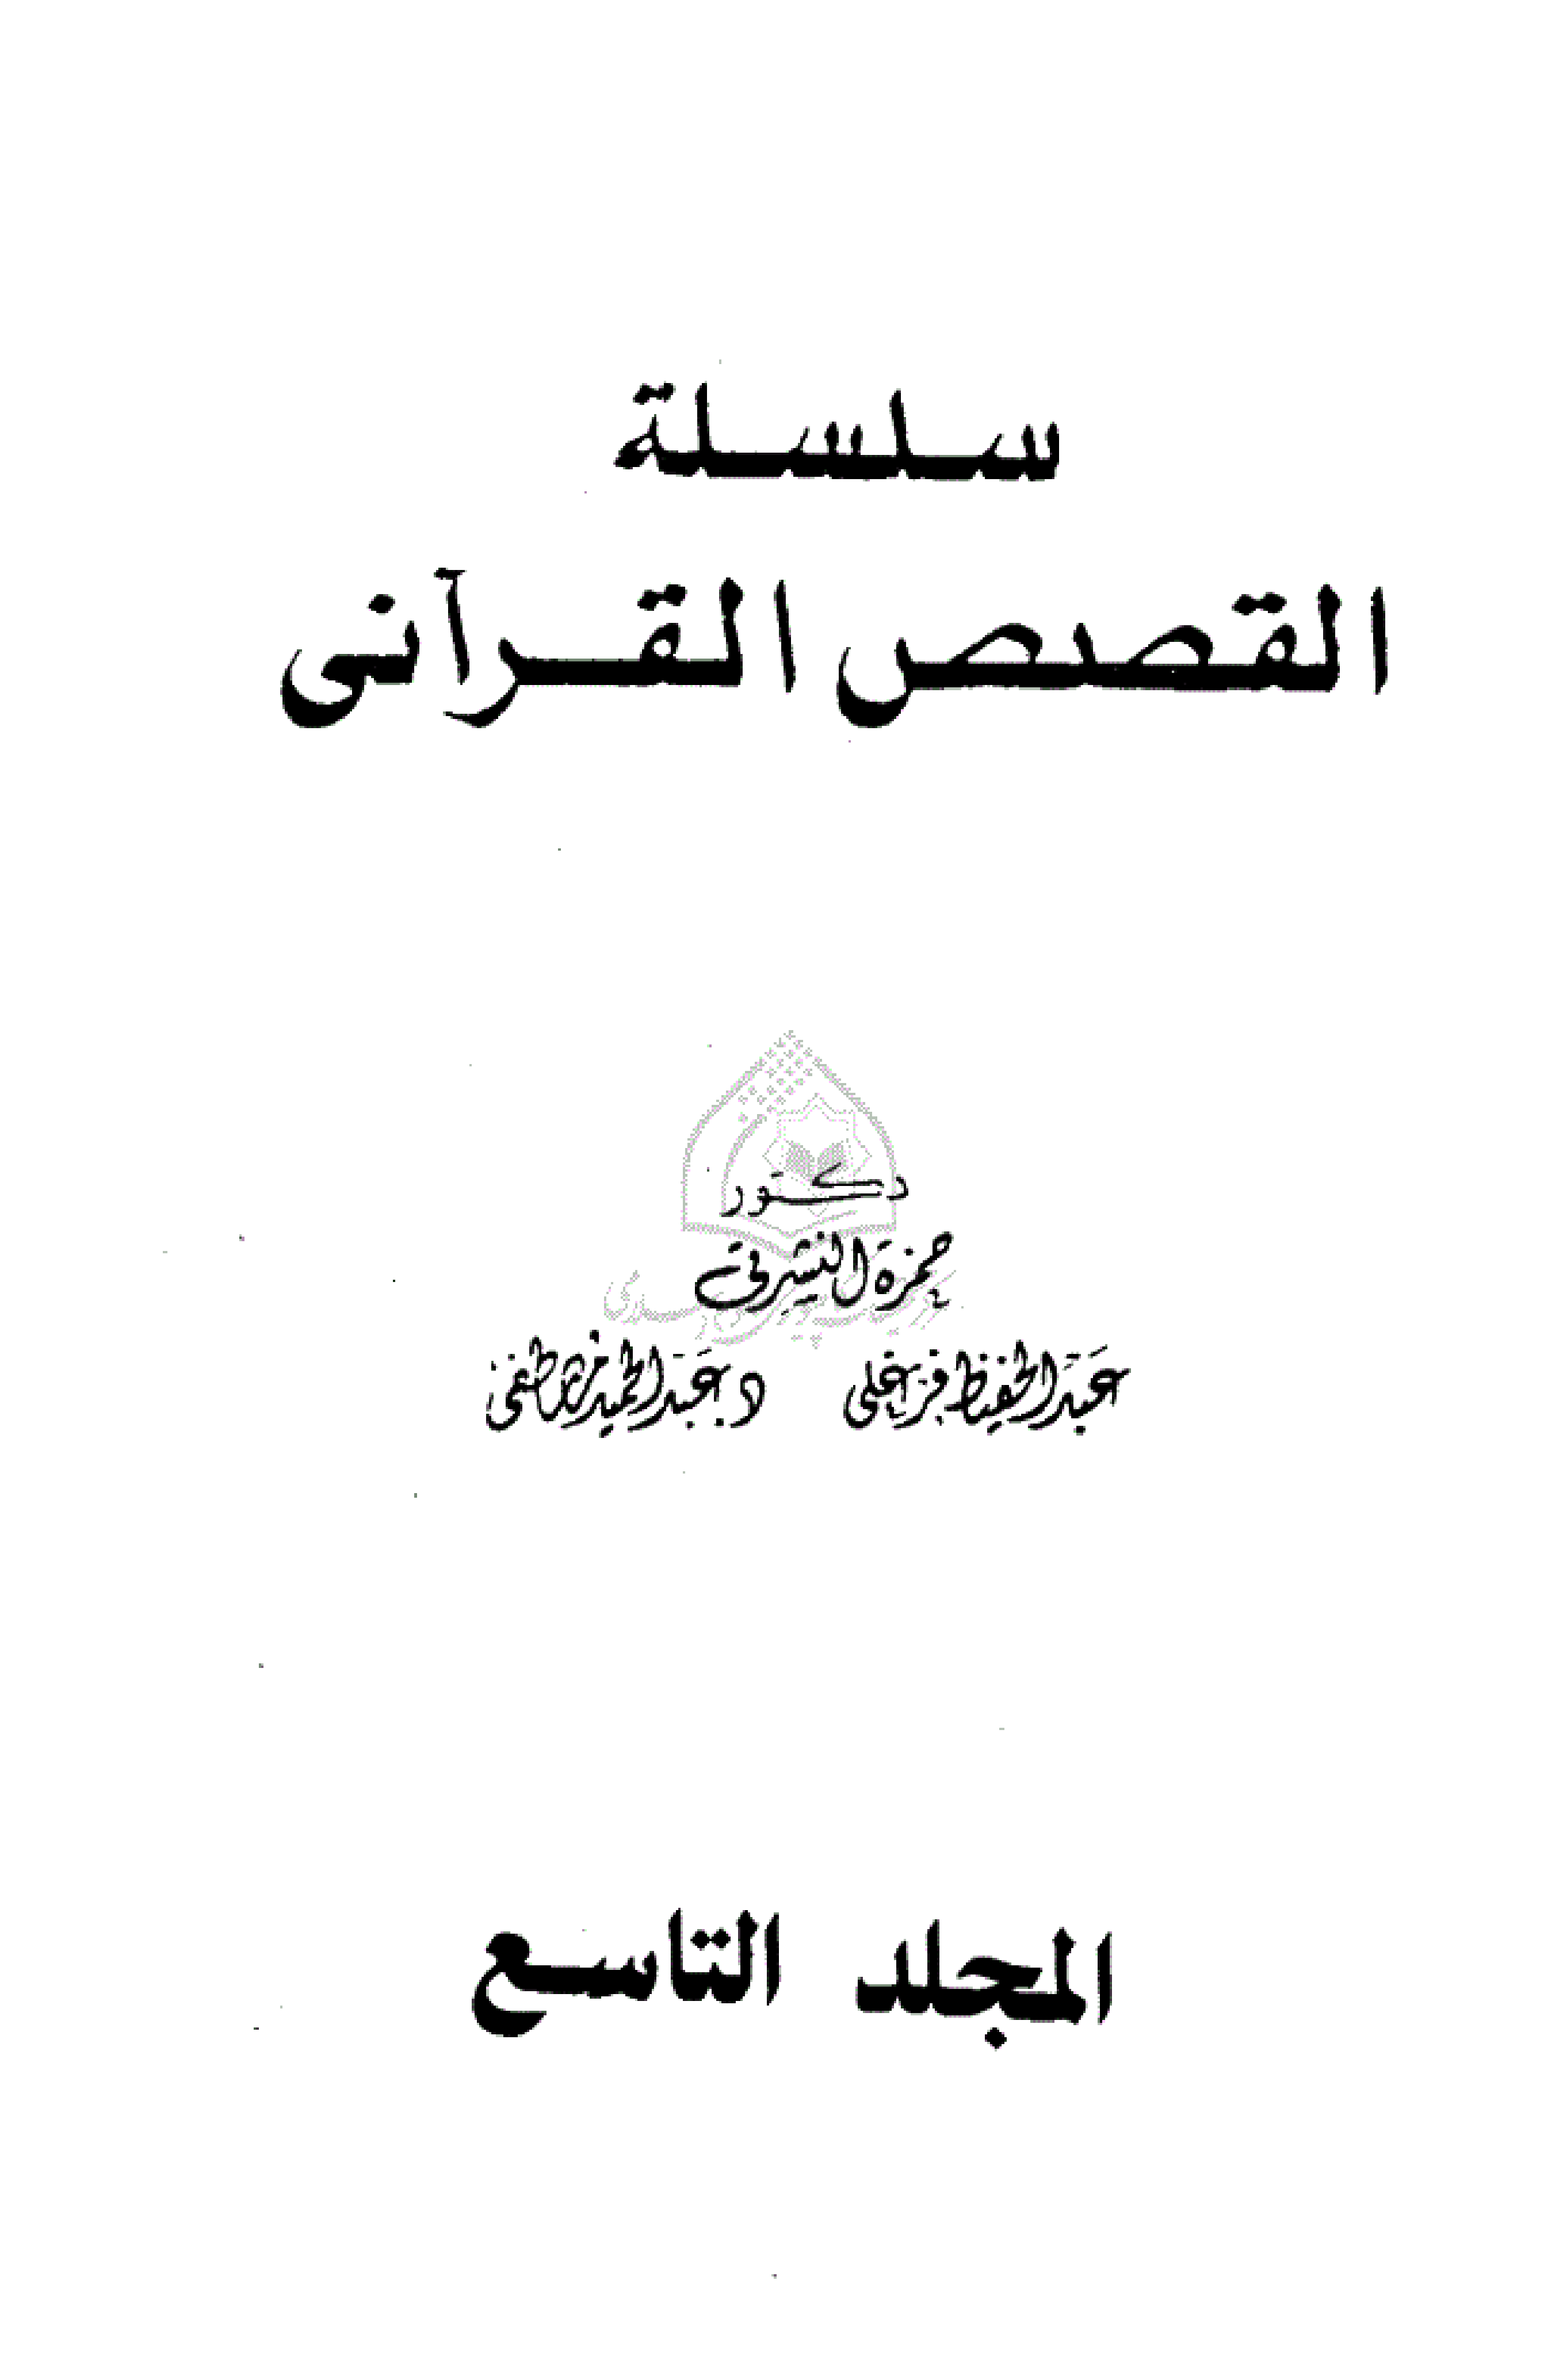 سلسلة
القصص القرآنى
دكتور
حمزة النشرتى
عبد الحفيظ فرغلى د. عبد الحميد مصطفى
المجلد التاسع